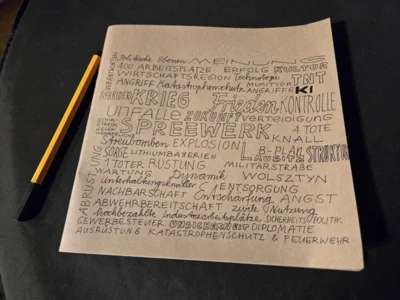 Politische Ebenen MEINUNG
100 ARBEITSPLÄTZE ERFOLG KULTUR
WIRTSCHAFTSREGION Technologie TNT
ANGRIFF Katastrophenschutz MUNITION
HYBRIDER ANGRIFFE KI
KRIEG Frieden KONTROLLE
UNFÄLLE ZUKUNFT VERTEIDIGUNG
SPREEWERK 4 TOTE
Streubomben EXPLOSION KNALL
SORGE LITHIUMBATERIEN B-PLAN
LAUSITZ
1 TOTER RÜSTUNG MILITÄRSTRAßE
WARTUNG Dynamik WOLSZTYN
Unterhaltungsknaller ENTSORGUNG
NACHBARSCHAFT Entschärfung ANGST
ABRÜSTUNG
ABWEHRBEREITSCHAFT zivile Nutzung
hochbezahlte Industriearbeitsplätze SICHERHEITSPOLITIK
GEWERBESTEUER UNSICHERHEIT DIPLOMATIE
AUSRÜSTUNG KATASTROPHENSCHUTZ & FEUERWEHR